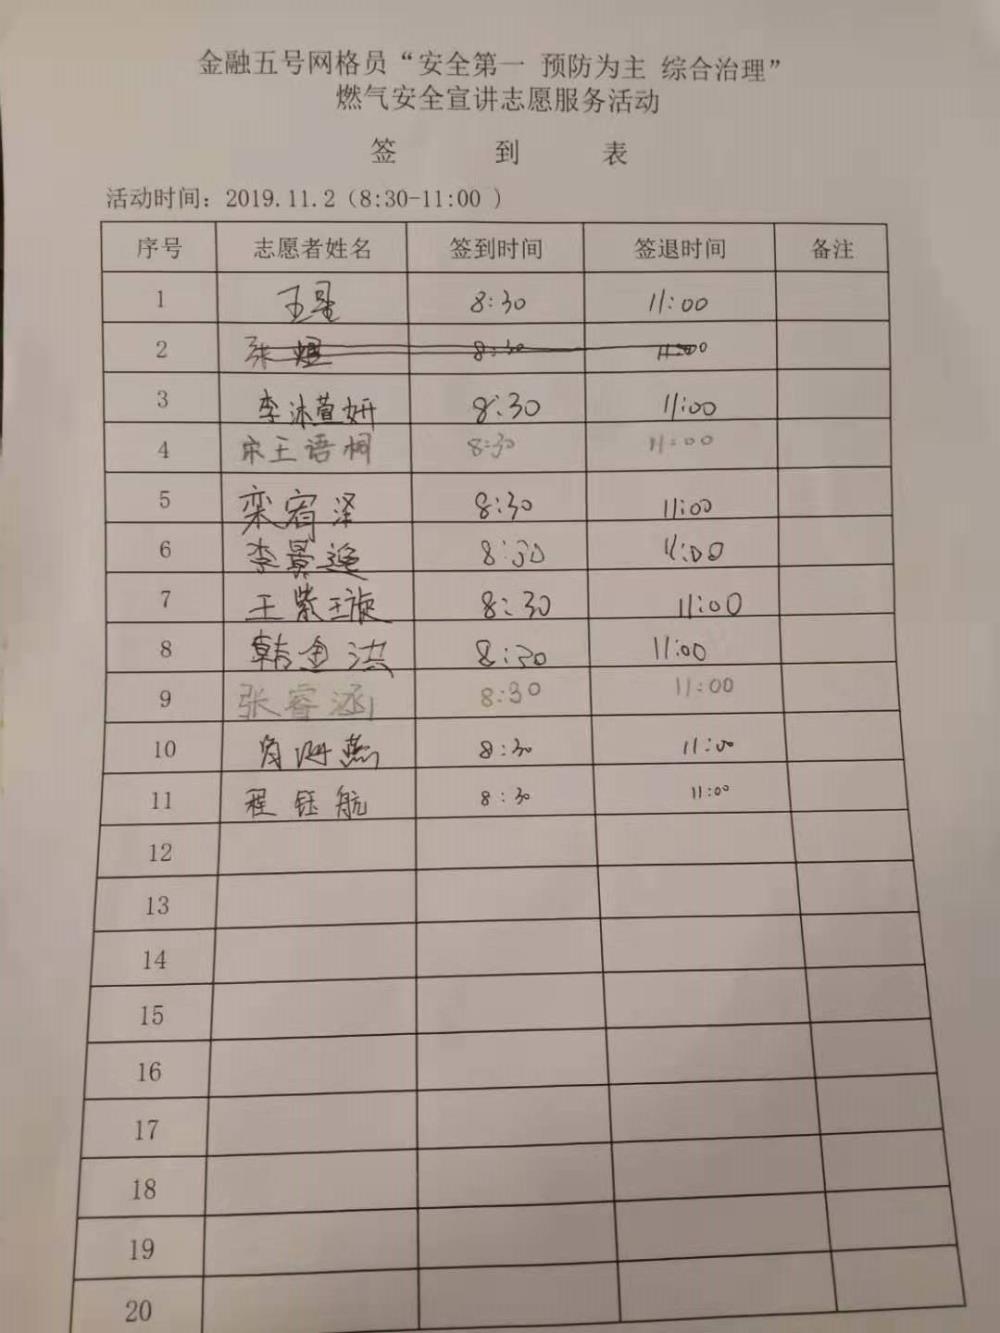 金融五号网格员“安全第一 预防为主 综合治理”
燃气安全宣讲志愿服务活动
签 到 表
活动时间：2019.11.2（8:30-11:00 ）
序号 志愿者姓名 签到时间 签退时间 备注
1 王星 8:30 11:00
2 张煜 8:30 11:00
3 李沐萱妍 8:30 11:00
4 宋王语桐 8:30 11:00
5 栾宥泽 8:30 11:00
6 李景逸 8:30 11:00
7 王紫璇 8:30 11:00
8 韩金洪 8:30 11:00
9 张睿涵 8:30 11:00
10 8:30 11:00
11 程钰航 8:30 11:00
12
13
14
15
16
17
18
19
20